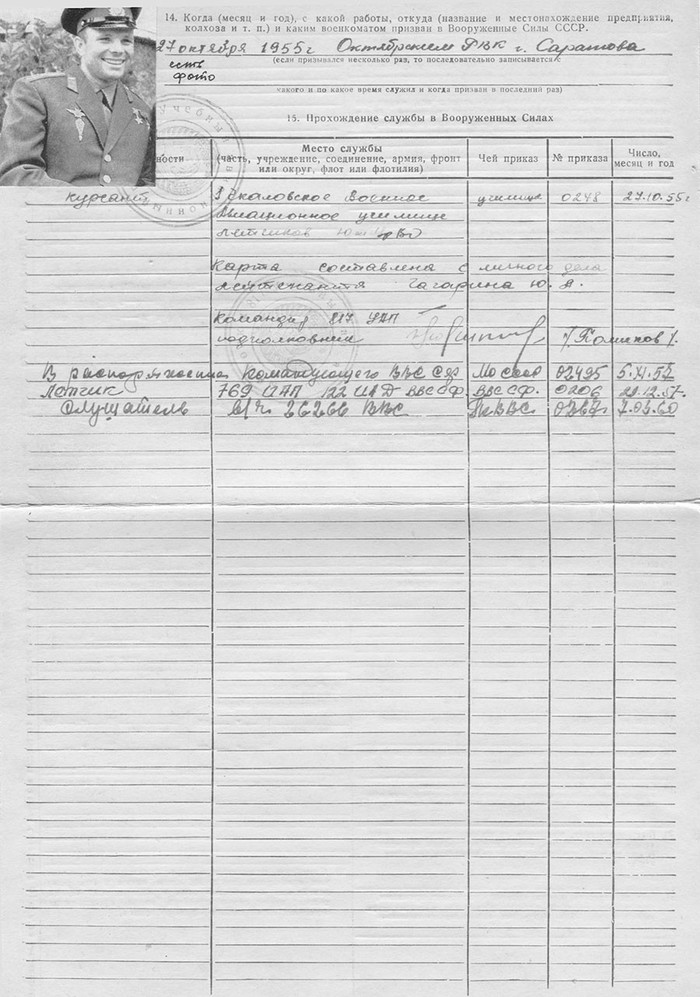 14. Когда (месяц и год), с какой работы, откуда (название и местонахождение предприятия,
колхоза и т. п.) и каким военкоматом призван в Вооруженные Силы СССР.
27 октября 1955г Октябрьским РВК г. Саратова
есть
фото
(если призывался несколько раз, то последовательно записывается с
какого и по какое время служил и когда призван в последний раз)
15. Прохождение службы в Вооруженных Силах
ности
Место службы
(часть, учреждение, соединение, армия, фронт
или округ, флот или флотилия)
Чей приказ
№ приказа
Число,
месяц и год
курсант
1 Чкаловское Военное училища 0248 27.10.55г
авиационное училище
летчиков
Карта составлена с личного дела
лейтенанта Гагарина Ю. А.
Командир 817 УАП
подполковник
В распоряжение командующего ВВС СФ Москов 02495 5.XI.57
Летчик 769 ИАП 122 ИАД ВВС СФ. ВВС СФ. 0206 12.57.
Слушатель в/ч 26266 ВВС ВВС 0267 7.03.60